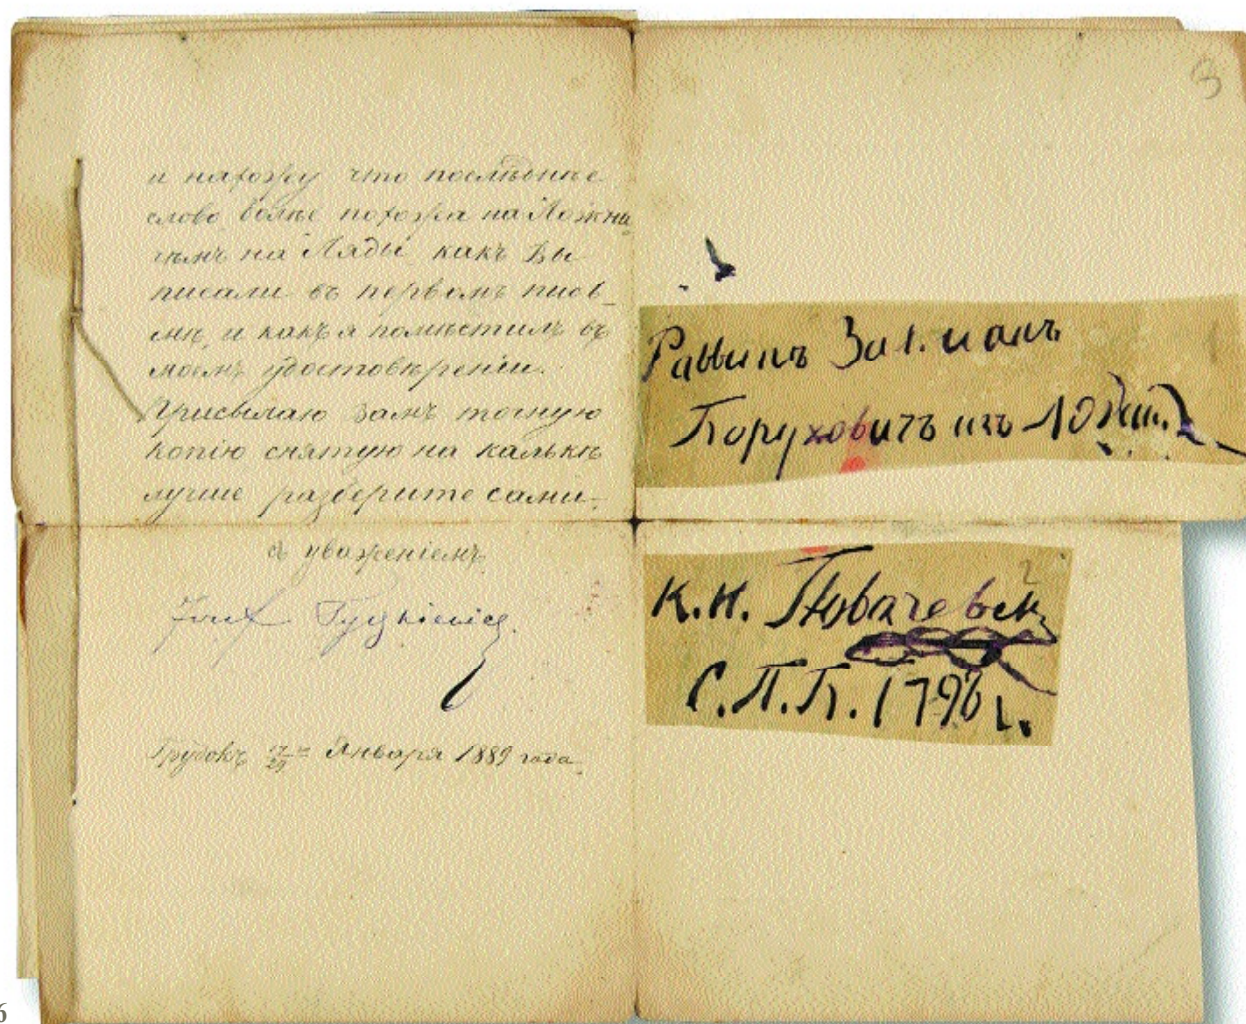 и нахожу что последнѣе
слово болѣе похоже на
чѣмъ на Ляды какъ Вы
писали въ первомъ пись-
мѣ, и какъ я помѣстилъ въ
моемъ удостовѣреніи.
Присылаю Вамъ точную
копію снятую на калькѣ
лучше разберите сами.
съ уваженіемъ
Января 1889 года
3
Раввинъ Залманъ
Боруховичъ изъ
2
К. Н.
С. П. Б. 1796 г.
6